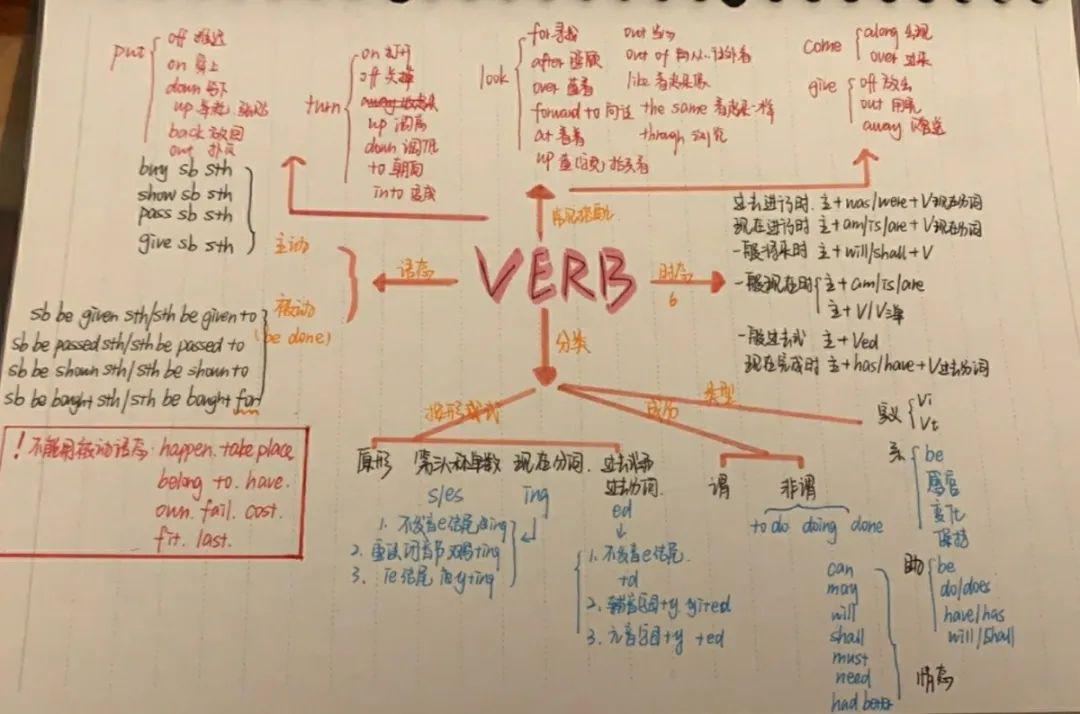 put
off 推迟
on 穿上
down 写下
up 举起 张贴
back 放回
out 扑灭
turn
on 打开
off 关掉
up 调高
down 调低
to 朝向
into 变成
look
for 寻找
after 照顾
over 查看
forward to
at 看着
up 查(字典) 抬头看
out 当心
out of 向从…往外看
like 看起来像
the same 看起来一样
through
come
along 出现
over 过来
give
off 放出
out 用完
away 赠送
常见搭配
buy sb sth
show sb sth
pass sb sth
give sb sth
主动
语态
VERB
时态
6
过去进行时 主+was/were+V现在分词
现在进行时 主+am/is/are+V现在分词
一般将来时 主+will/shall+V
一般现在时 主+am/is/are
主+V/V三单
一般过去式 主+Ved
现在完成时 主+has/have+V过去分词
被动
(be done)
sb be given sth/sth be given to
sb be passed sth/sth be passed to
sb be shown sth/sth be shown to
sb be bought sth/sth be bought for
分类
按形式式
成分
类型
! 不能用被动语态: happen. take place
belong to. have.
own. fail. cost.
fit. last.
原形
第三人称单数
s/es
现在分词
ing
过去分词
ed
1. 不发音e结尾 去ing
2. 重读闭音节 双写+ing
3. ie结尾 改y+ing
1. 不发音e结尾
+d
2. 辅音字母+y yi+ed
3. 元音字母+y +ed
谓
非谓
to do doing done
实义
Vi
Vt
系
be
感官
变化
保持
助
be
do/does
have/has
will/shall
can
may
will
shall
must
need
had better
情态